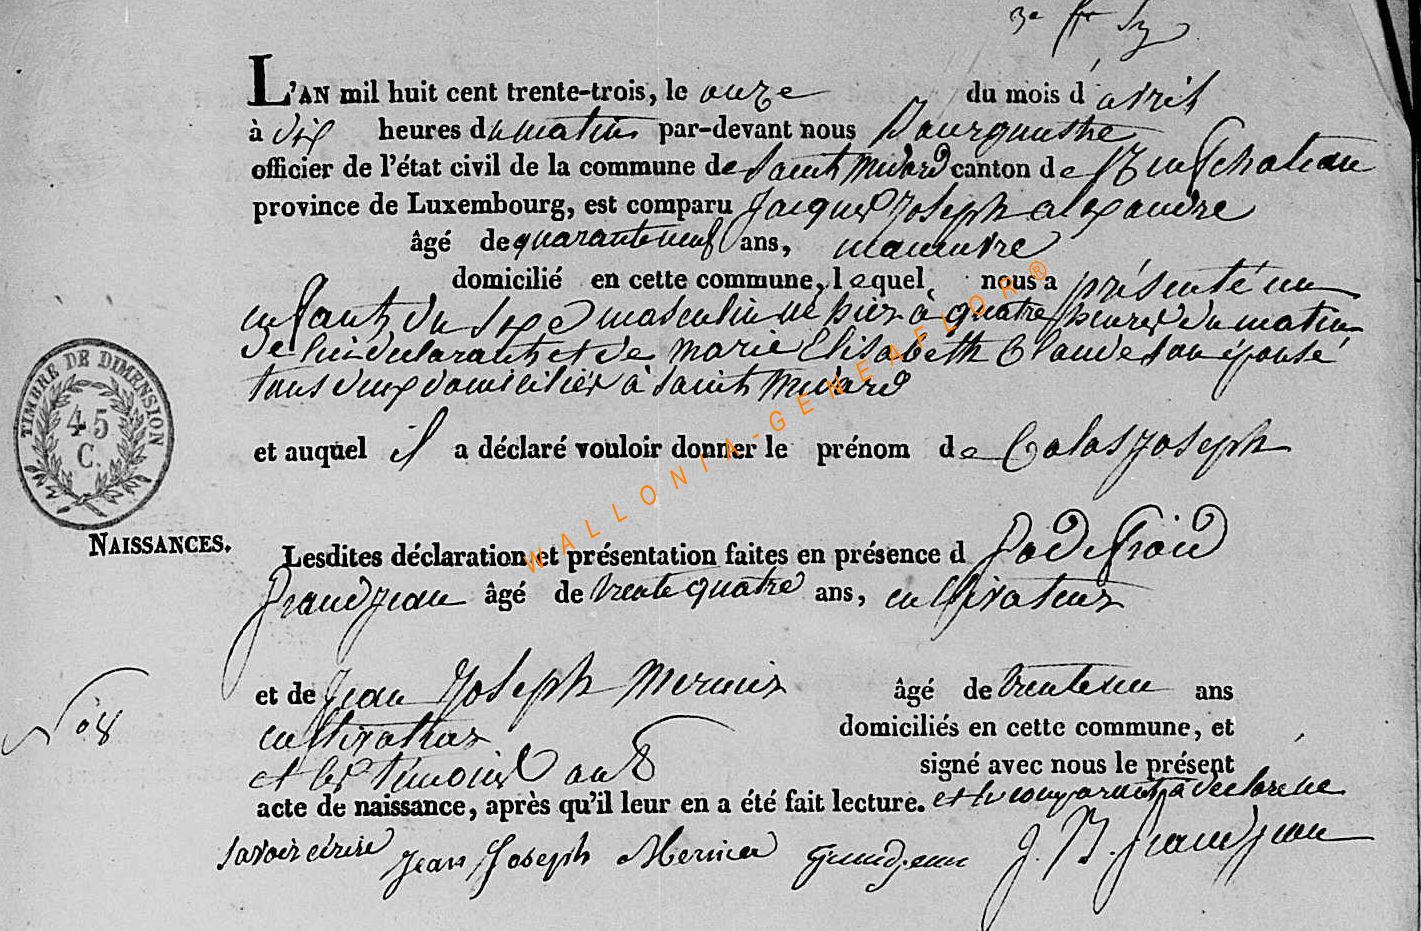 L'AN mil huit cent trente-trois, le onze du mois d'avril
à dix heures du matin par-devant nous Bourgmestre
officier de l'état civil de la commune de Saint Médard canton de Neufchateau
province de Luxembourg, est comparu Jacques Joseph alexandre
âgé de quarante neuf ans, manœuvre
domicilié en cette commune, lequel nous a présenté un
enfant du sexe masculin né hier à quatre heures du matin
de lui declarant et de Marie Elisabeth Claude son épouse
tous deux domiciliés à Saint Médard
et auquel il a déclaré vouloir donner le prénom de Colas Joseph
TIMBRE DE DIMENSION
45
C.
NAISSANCES.
Lesdites déclaration et présentation faites en présence d Godefroid
Grandjean âgé de trente quatre ans, cultivateur
et de Jean Joseph Mernier âgé de trente un ans
No 8
cultivateur domiciliés en cette commune, et
et les témoins ont signé avec nous le présent
acte de naissance, après qu'il leur en a été fait lecture. et le comparant a declaré ne
savoir écrire Jean Joseph Mernier Grandjean J. B. Grandjean
WALLONIA-GENEAFLOR®